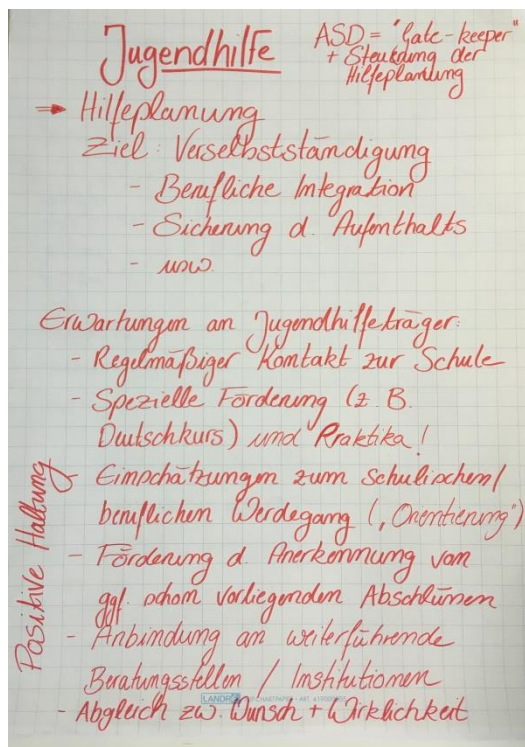 Jugendhilfe
ASD = "Gate-keeper"
+ Steuerung der
Hilfeplanung
➡ Hilfeplanung
Ziel: Verselbstständigung
- Berufliche Integration
- Sicherung d. Aufenthalts
- usw.
Erwartungen an Jugendhilfeträger:
- Regelmäßiger Kontakt zur Schule
- Spezielle Förderung (z. B.
Deutschkurs) und Praktika!
- Einschätzungen zum schulischen/
beruflichen Werdegang („Orientierung")
- Förderung d. Anerkennung von
ggf. schon vorliegenden Abschlüssen
- Anbindung an weiterführende
Beratungsstellen / Institutionen
- Abgleich zw. Wunsch + Wirklichkeit
Positive Haltung